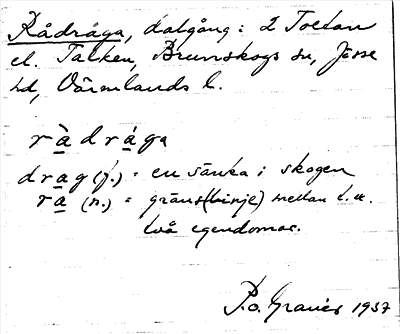 Rådråga, dalgång: 2 Toetan
el. Talken, Brunskogs sn, Jösse
hd, Värmlands l.
ràdrága
drag (f.) = en sänka i skogen
rå (n.) = gräns(linje) mellan t. ex.
två egendomar.
P.o. Granér 1937